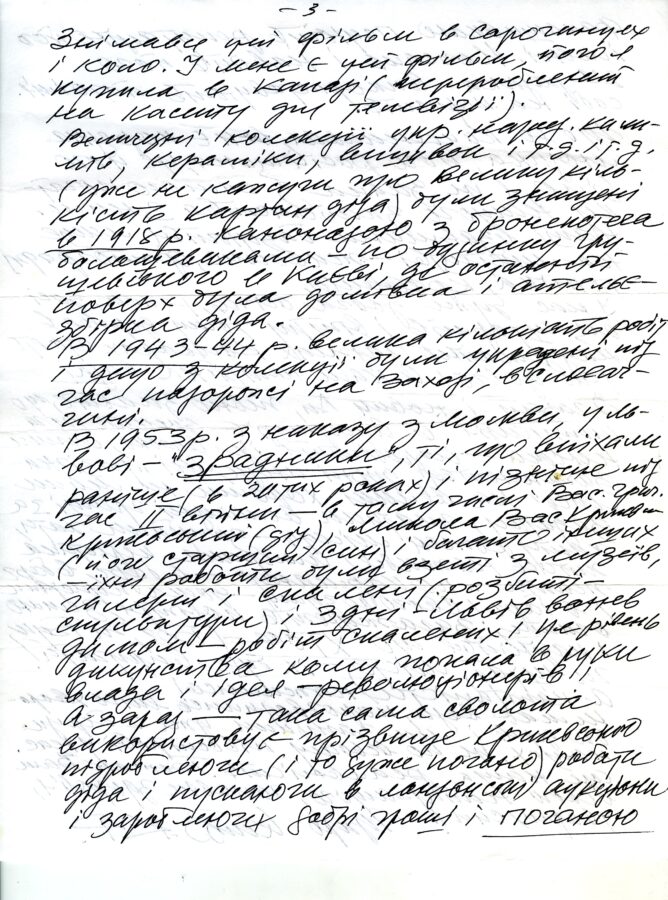 - 3 -
Знімався цей фільм в Сорочинцях
і коло. У мене є цей фільм, того я
купила в Канаді (перероблений
на касету для телевізії).
Величезні колекції укр. народ. кили-
мів, кераміки, вишивок і т.д. і т.д.
(уже не кажучи про велику кіль-
кість картин діда) були знищені
в 1918 р. канонадою з броненотяга
большевиками – по будинку Гру-
шевського в Києві, де останній
поверх була домівка і ательє-
збірка діда.
В 1943-44 р. велика кількість робіт
і дещо з колекції були украдені під
час подорожі на Захід, в Словач-
чині.
В 1953 р. з наказу з Москви, у Ль-
вові – "зрадники", ті, що виїхали
раніше (в 20тих роках) і пізніше під
час II війни – в тому числі Вас. Григ.
Кричевський (дід) Микола Вас. Кричев-
(його старший син) і багато інших
– їхні роботи були взяті з музеїв,
галерей і спалені (розбиті –
скульптури) і 3 дні Львів воняв
димом – робіт спалених і це рівень
дикунства кому попала в руки
влада і ідея – революціонерів!!
А зараз – така сама сволота
використовує прізвище Кричевського
підроблюючи (і то дуже погано) роботи
діда і пускаючи в лондонські аукціони
і заробляючи добрі гроші і поганою